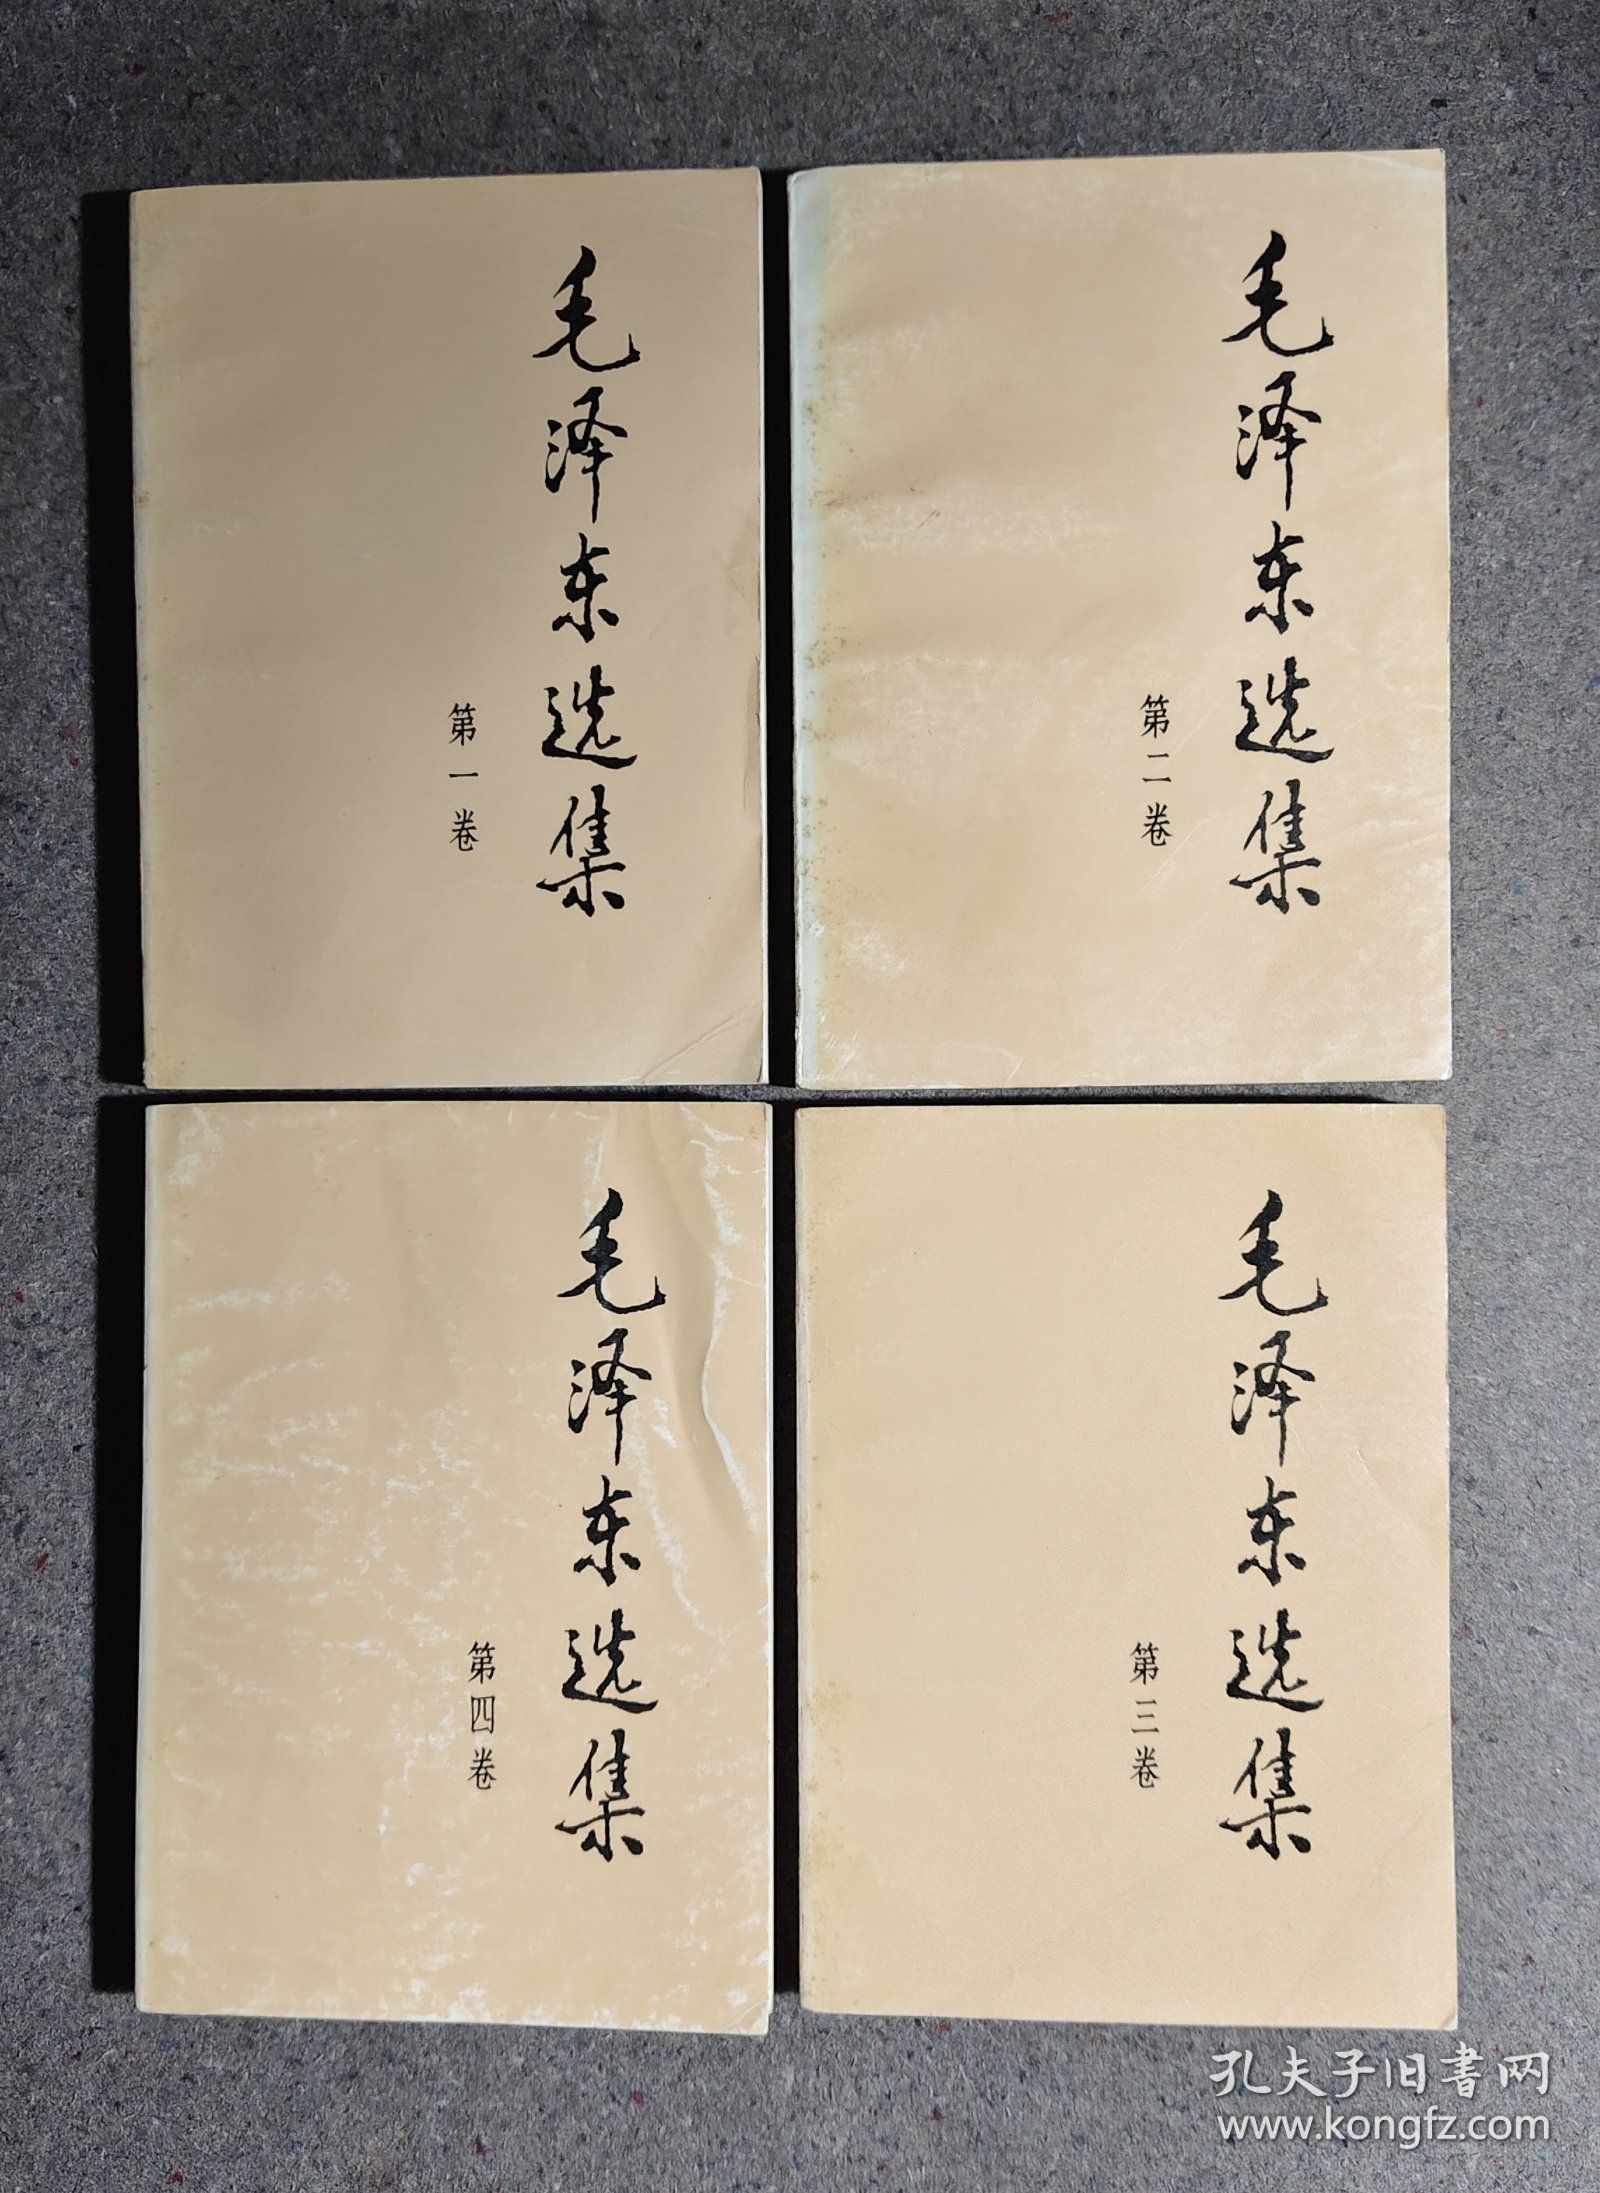 毛泽东选集
第一卷
毛泽东选集
第二卷
毛泽东选集
第四卷
毛泽东选集
第三卷
孔夫子旧书网
www.kongfz.com